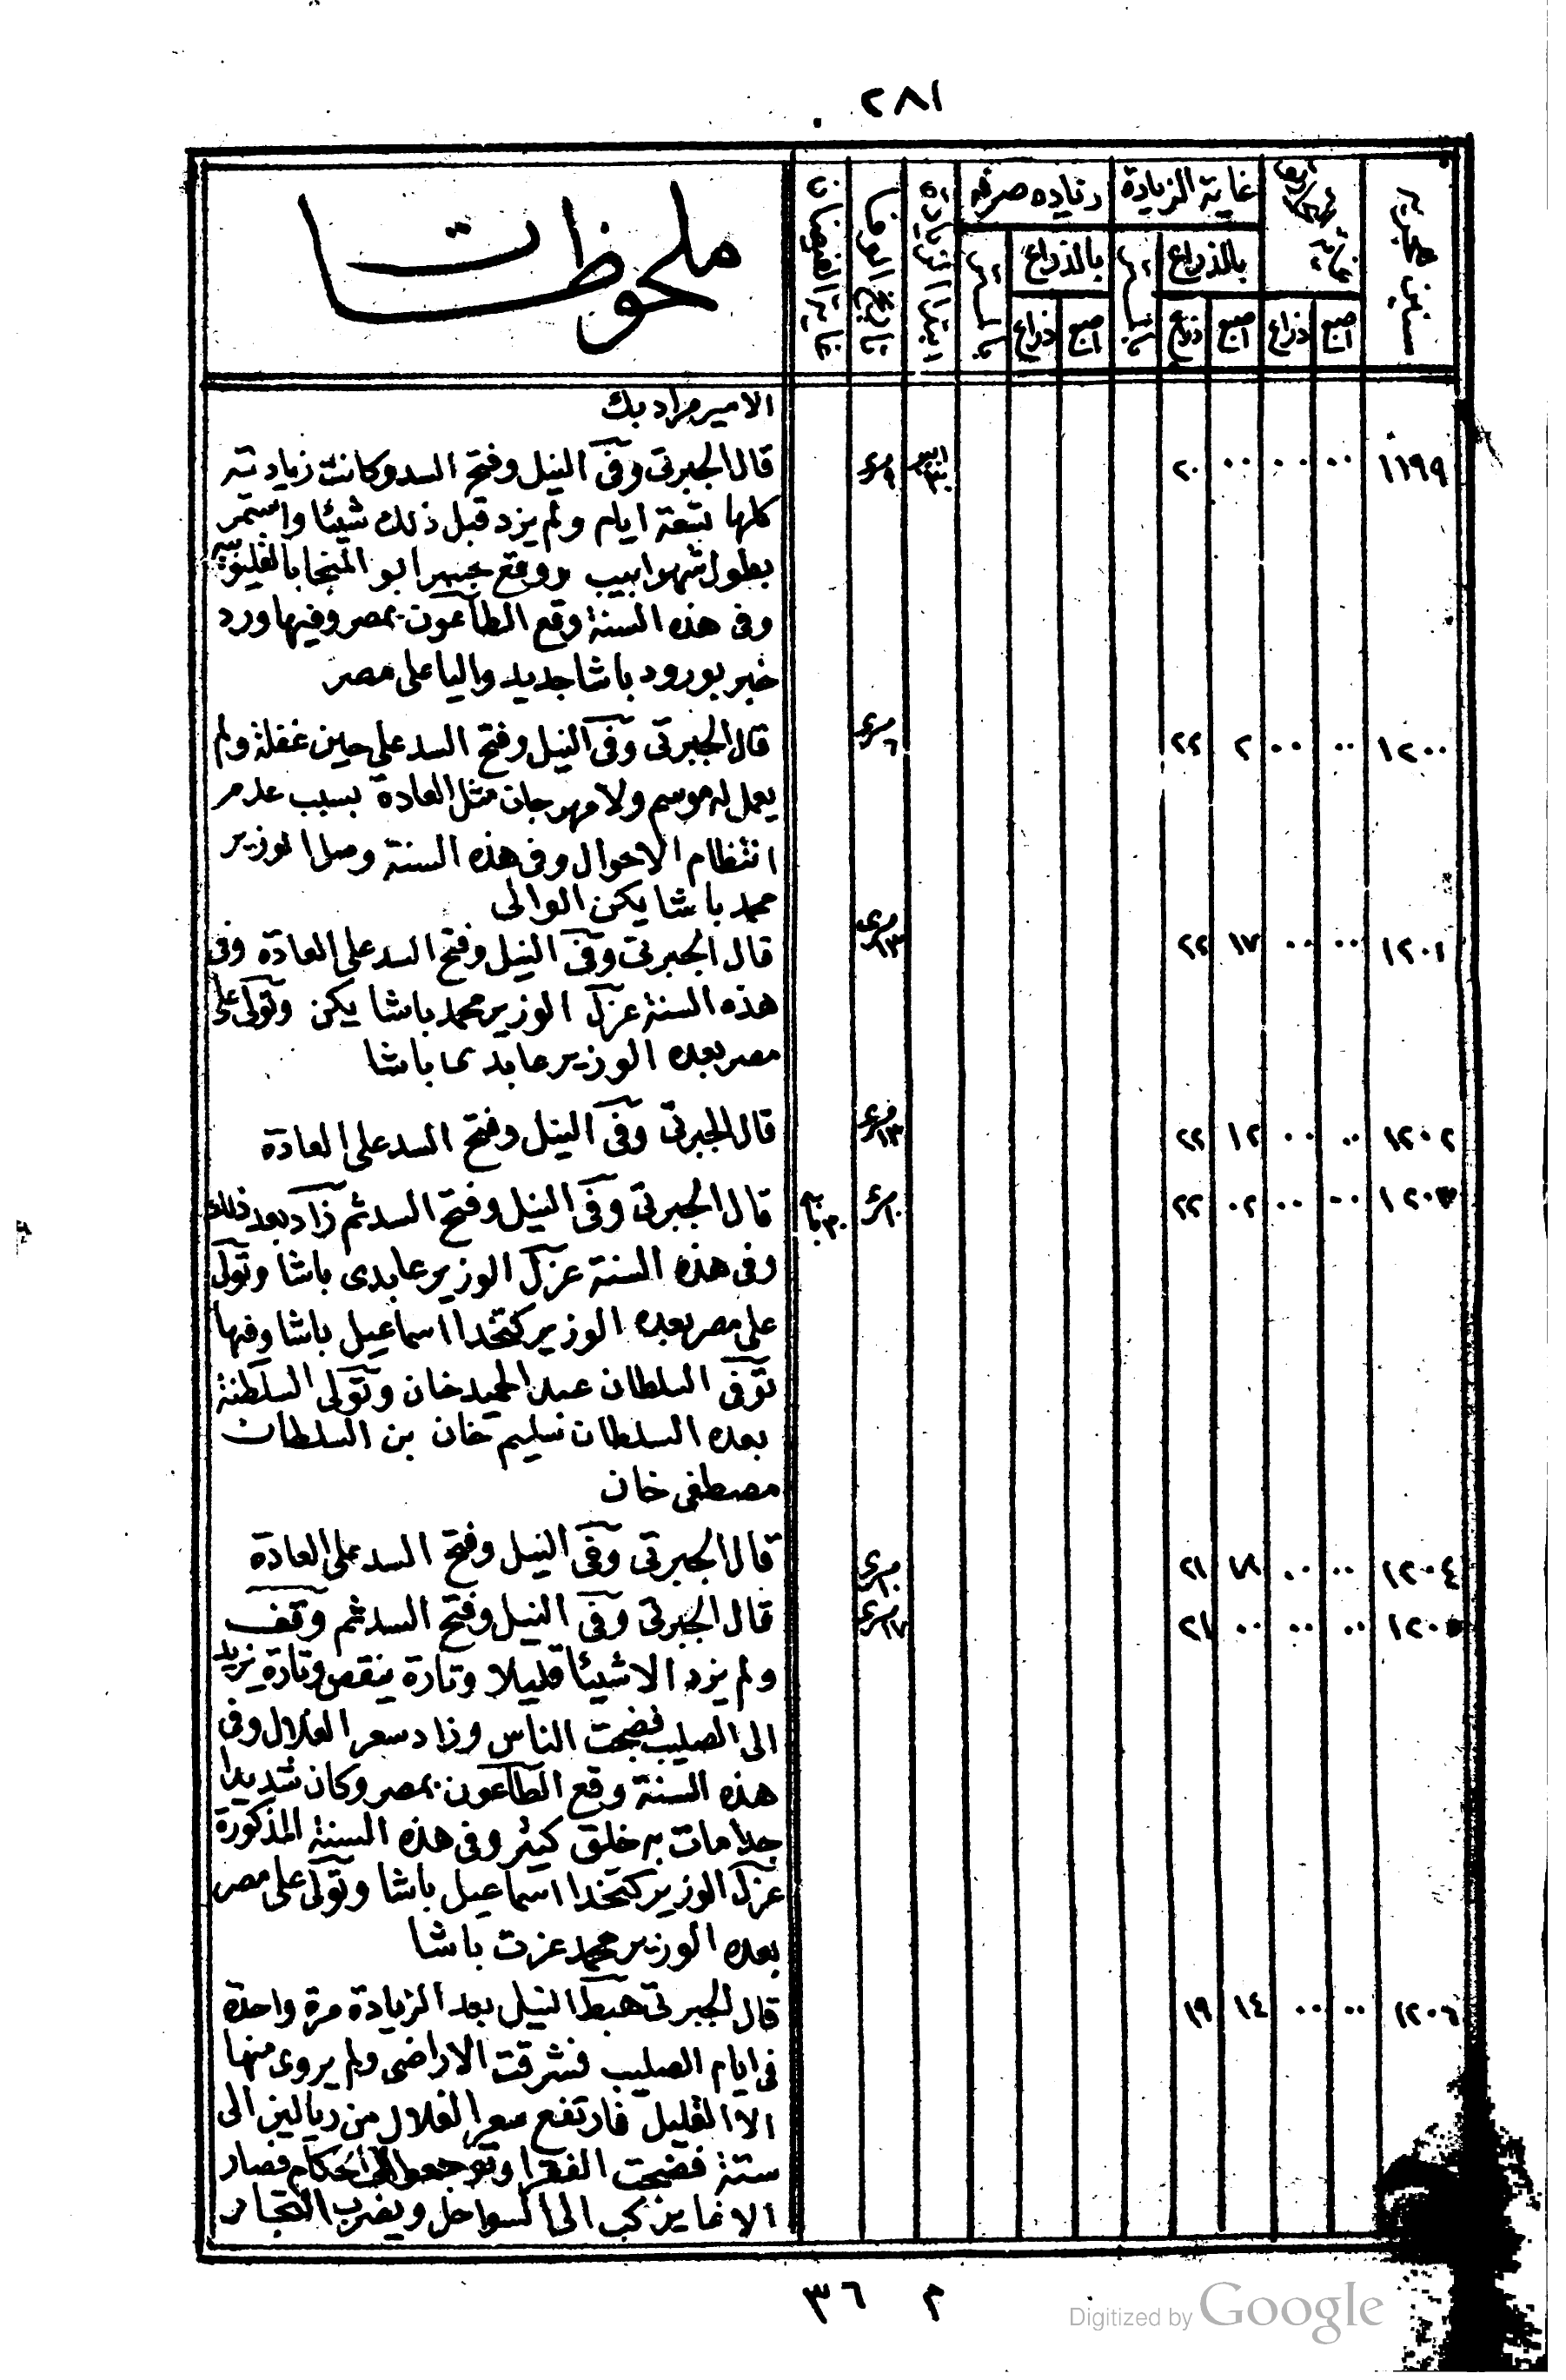 ٢٨١
سنين هجرية
غاية الزيادة
زياده صرفه
ابتدا الزيادة
تاريخ الوفا
غاية الفيضان
ملحوظات
بالذراع
بالذراع
اصبع ذراع اصبع ذراع اصبع ذراع
الامير مراد بك
١١٩٩ ٠٠ ٠٠ ٠٠ ٢٠
قال الجبرتى وفى النيل وفتح السد وكانت زيادته
كلها تسعة ايام ولم يزد قبل ذلك شيئا واستمر
بطول شهر ابيب ووقع جسر ابو المنجا بالقليوبيه
وفى هذه السنة وقع الطاعون بمصر وفيها ورد
خبر بورود باشا جديد واليا على مصر
١٢٠٠ ٠٠ ٠٠ ٢ ٢٢ ٦ مسرى
قال الجبرتى وفى النيل وفتح السد على حين غفلة ولم
يعمل له موسم ولا مهرجان مثل العادة بسبب عدم
انتظام الاحوال وفى هذه السنة وصل الوزير
محمد باشا يكن الوالى
١٢٠١ ٠٠ ٠٠ ١٧ ٢٢ ١٣ مسرى
قال الجبرتى وفى النيل وفتح السد على العادة وفى
هذه السنة عزل الوزير محمد باشا يكن وتولى على
مصر بعده الوزير عابدى باشا
١٢٠٢ ٠٠ ٠٠ ١٢ ٢٢ ١٣ مسرى
قال الجبرتى وفى النيل وفتح السد على العادة
١٢٠٣ ٠٠ ٠٠ ٠٢ ٢٢ ١٠ مسرى
قال الجبرتى وفى النيل وفتح السد ثم زاد بعد ذلك
وفى هذه السنة عزل الوزير عابدى باشا وتولى
على مصر بعده الوزير كتخدا اسماعيل باشا وفيها
توفى السلطان عبد الحميد خان وتولى السلطنة
بعده السلطان سليم خان بن السلطان
مصطفى خان
١٢٠٤ ٠٠ ٠٠ ١٨ ٢١ ١٠ مسرى
قال الجبرتى وفى النيل وفتح السد على العادة
١٢٠٥ ٠٠ ٠٠ ٠٠ ٢١ ١٧ مسرى
قال الجبرتى وفى النيل وفتح السد ثم وقف
ولم يزد الا شيئا قليلا وتارة ينقص وتارة يزيد
الى الصليب فضجت الناس وزاد سعر الغلال وفى
هذه السنة وقع الطاعون بمصر وكان شديدا
جدا مات به خلق كثير وفى هذه السنة المذكورة
عزل الوزير كتخدا اسماعيل باشا وتولى على مصر
بعده الوزير محمد عزت باشا
١٢٠٦ ٠٠ ٠٠ ١٤ ١٩
قال الجبرتى هبط النيل بعد الزيادة مرة واحدة
فى ايام الصليب فشرقت الاراضى ولم يروى منها
الا القليل فارتفع سعر الغلال من ريالين الى
ستة فضجت الفقرا وتوجهوا الى الحكام فصار
الاغا يركب الى السواحل ويضرب التجار
٣٦ م
Digitized by Google